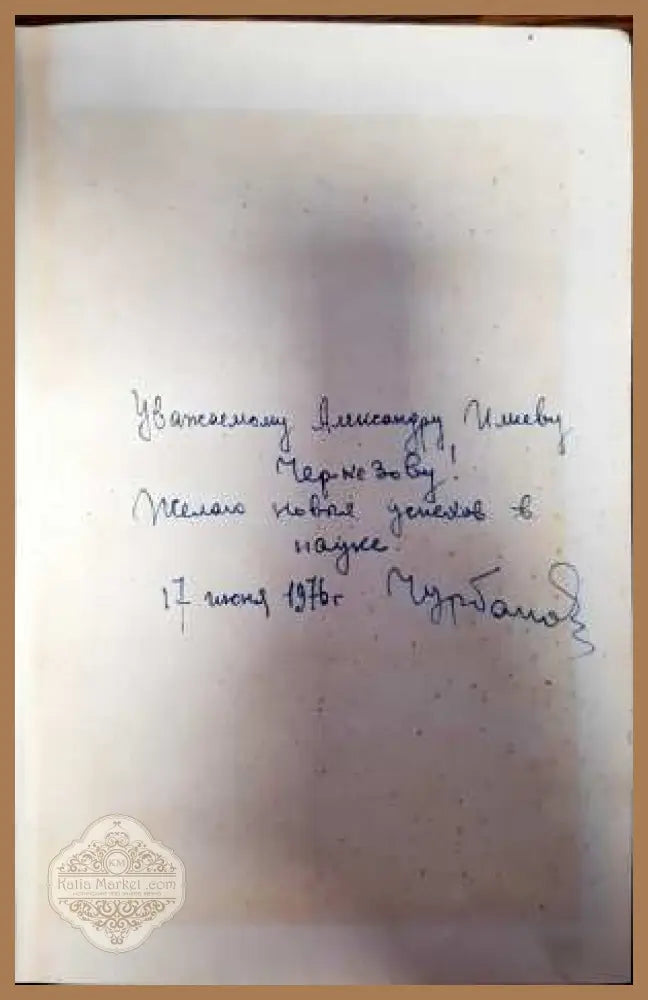 Уважаемому Александру Илиеву
Черкезову!
Желаю новых успехов в
науке.
17 июня 1976г Чурбанов
KM
Katia Market .com